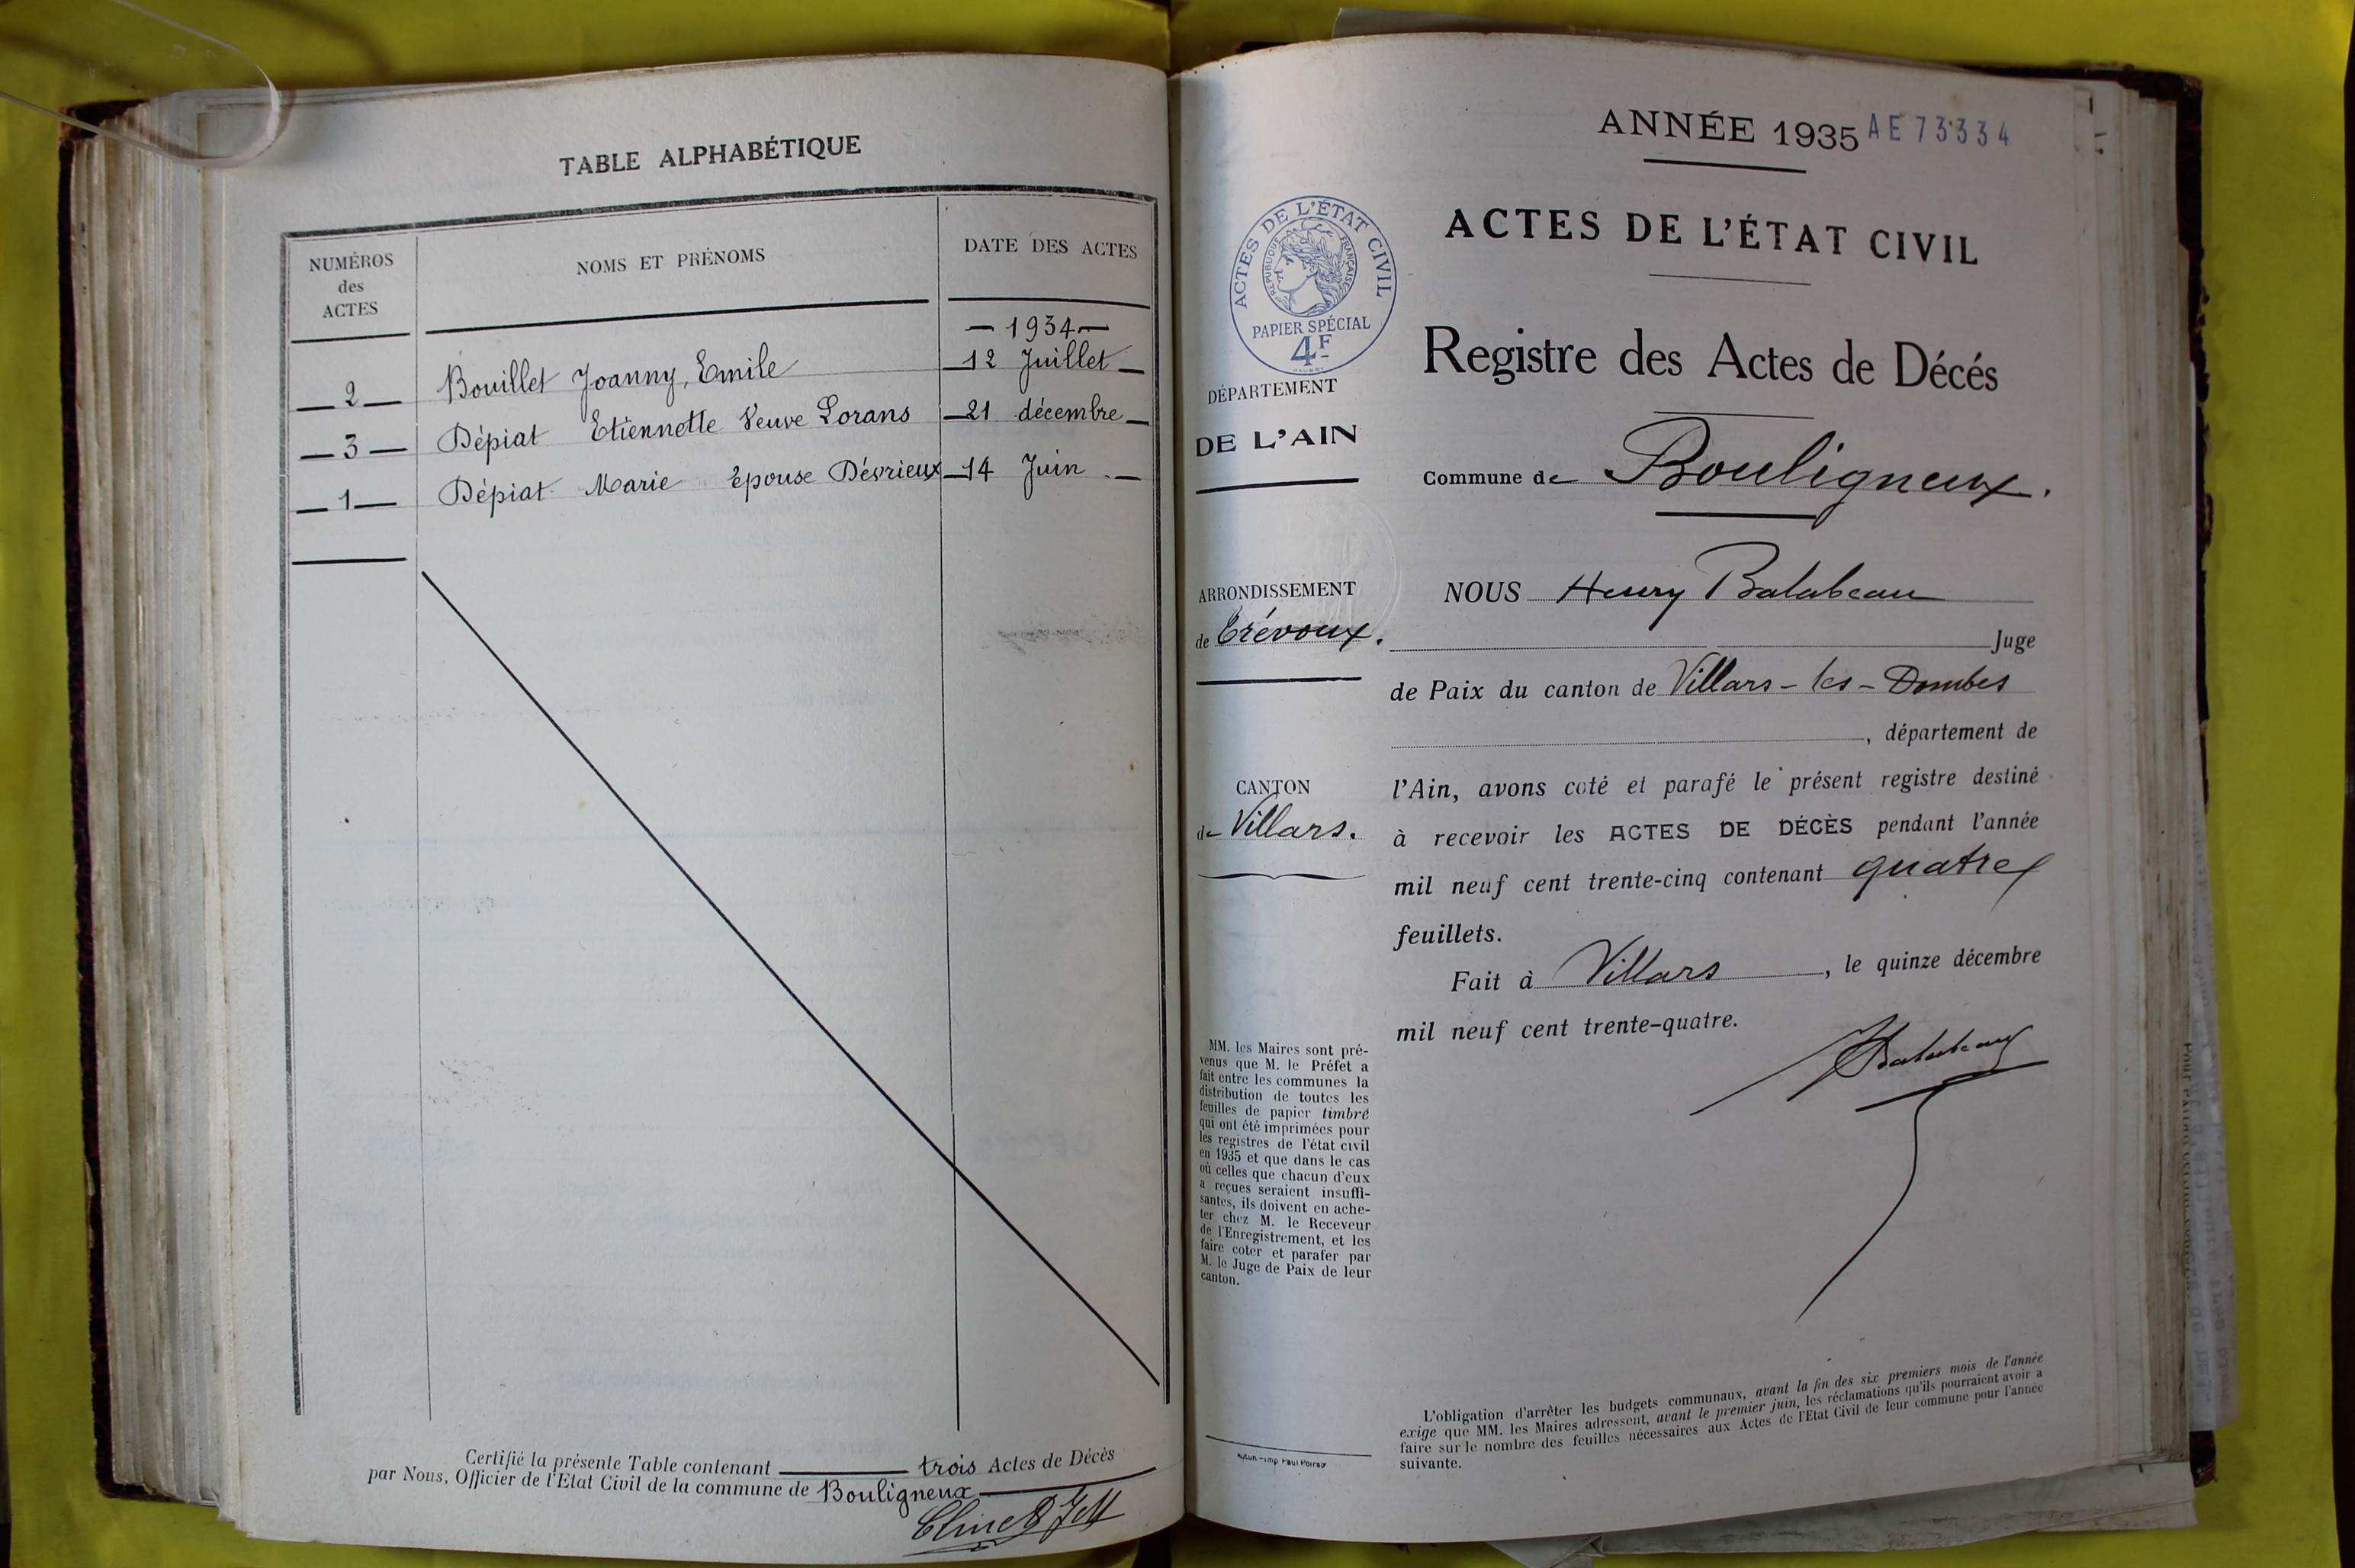 TABLE ALPHABÉTIQUE
NUMÉROS
des
ACTES
NOMS ET PRÉNOMS
DATE DES ACTES
— 1934 —
— 2 — Bouillet Joanny, Emile 12 Juillet —
— 3 — Dépiat Etiennette Veuve Lorans — 21 décembre —
— 1 — Dépiat Marie Epouse Dévrieux — 14 Juin —
Certifié la présente Table contenant trois Actes de Décès
par Nous, Officier de l'Etat Civil de la commune de Bouligneux
ANNÉE 1935 AE 73334
ACTES DE L'ÉTAT CIVIL
RÉPUBLIQUE FRANÇAISE
PAPIER SPÉCIAL
4F
ACTES DE L'ÉTAT CIVIL
Registre des Actes de Décés
DÉPARTEMENT
DE L'AIN
Commune de Bouligneux.
ARRONDISSEMENT
de Trévoux.
NOUS Henry Balabeau
Juge
de Paix du canton de Villars-les-Dombes
, département de
CANTON
de Villars.
l'Ain, avons coté et parafé le présent registre destiné
à recevoir les ACTES DE DÉCÈS pendant l'année
mil neuf cent trente-cinq contenant quatre
feuillets.
Fait à Villars, le quinze décembre
mil neuf cent trente-quatre.
Balabeau
MM. les Maires sont pré-
venus que M. le Préfet a
fait entre les communes la
distribution de toutes les
feuilles de papier timbré
qui ont été imprimées pour
les registres de l'état civil
en 1935 et que dans le cas
où celles que chacun d'eux
a reçues seraient insuffi-
santes, ils doivent en ache-
ter chez M. le Receveur
de l'Enregistrement, et les
faire coter et parafer par
M. le Juge de Paix de leur
canton.
L'obligation d'arrêter les budgets communaux, avant la fin des six premiers mois de l'année
exige que MM. les Maires adressent, avant le premier juin, les réclamations qu'ils pourraient avoir a
faire sur le nombre des feuilles nécessaires aux Actes de l'Etat Civil de leur commune pour l'année
suivante.